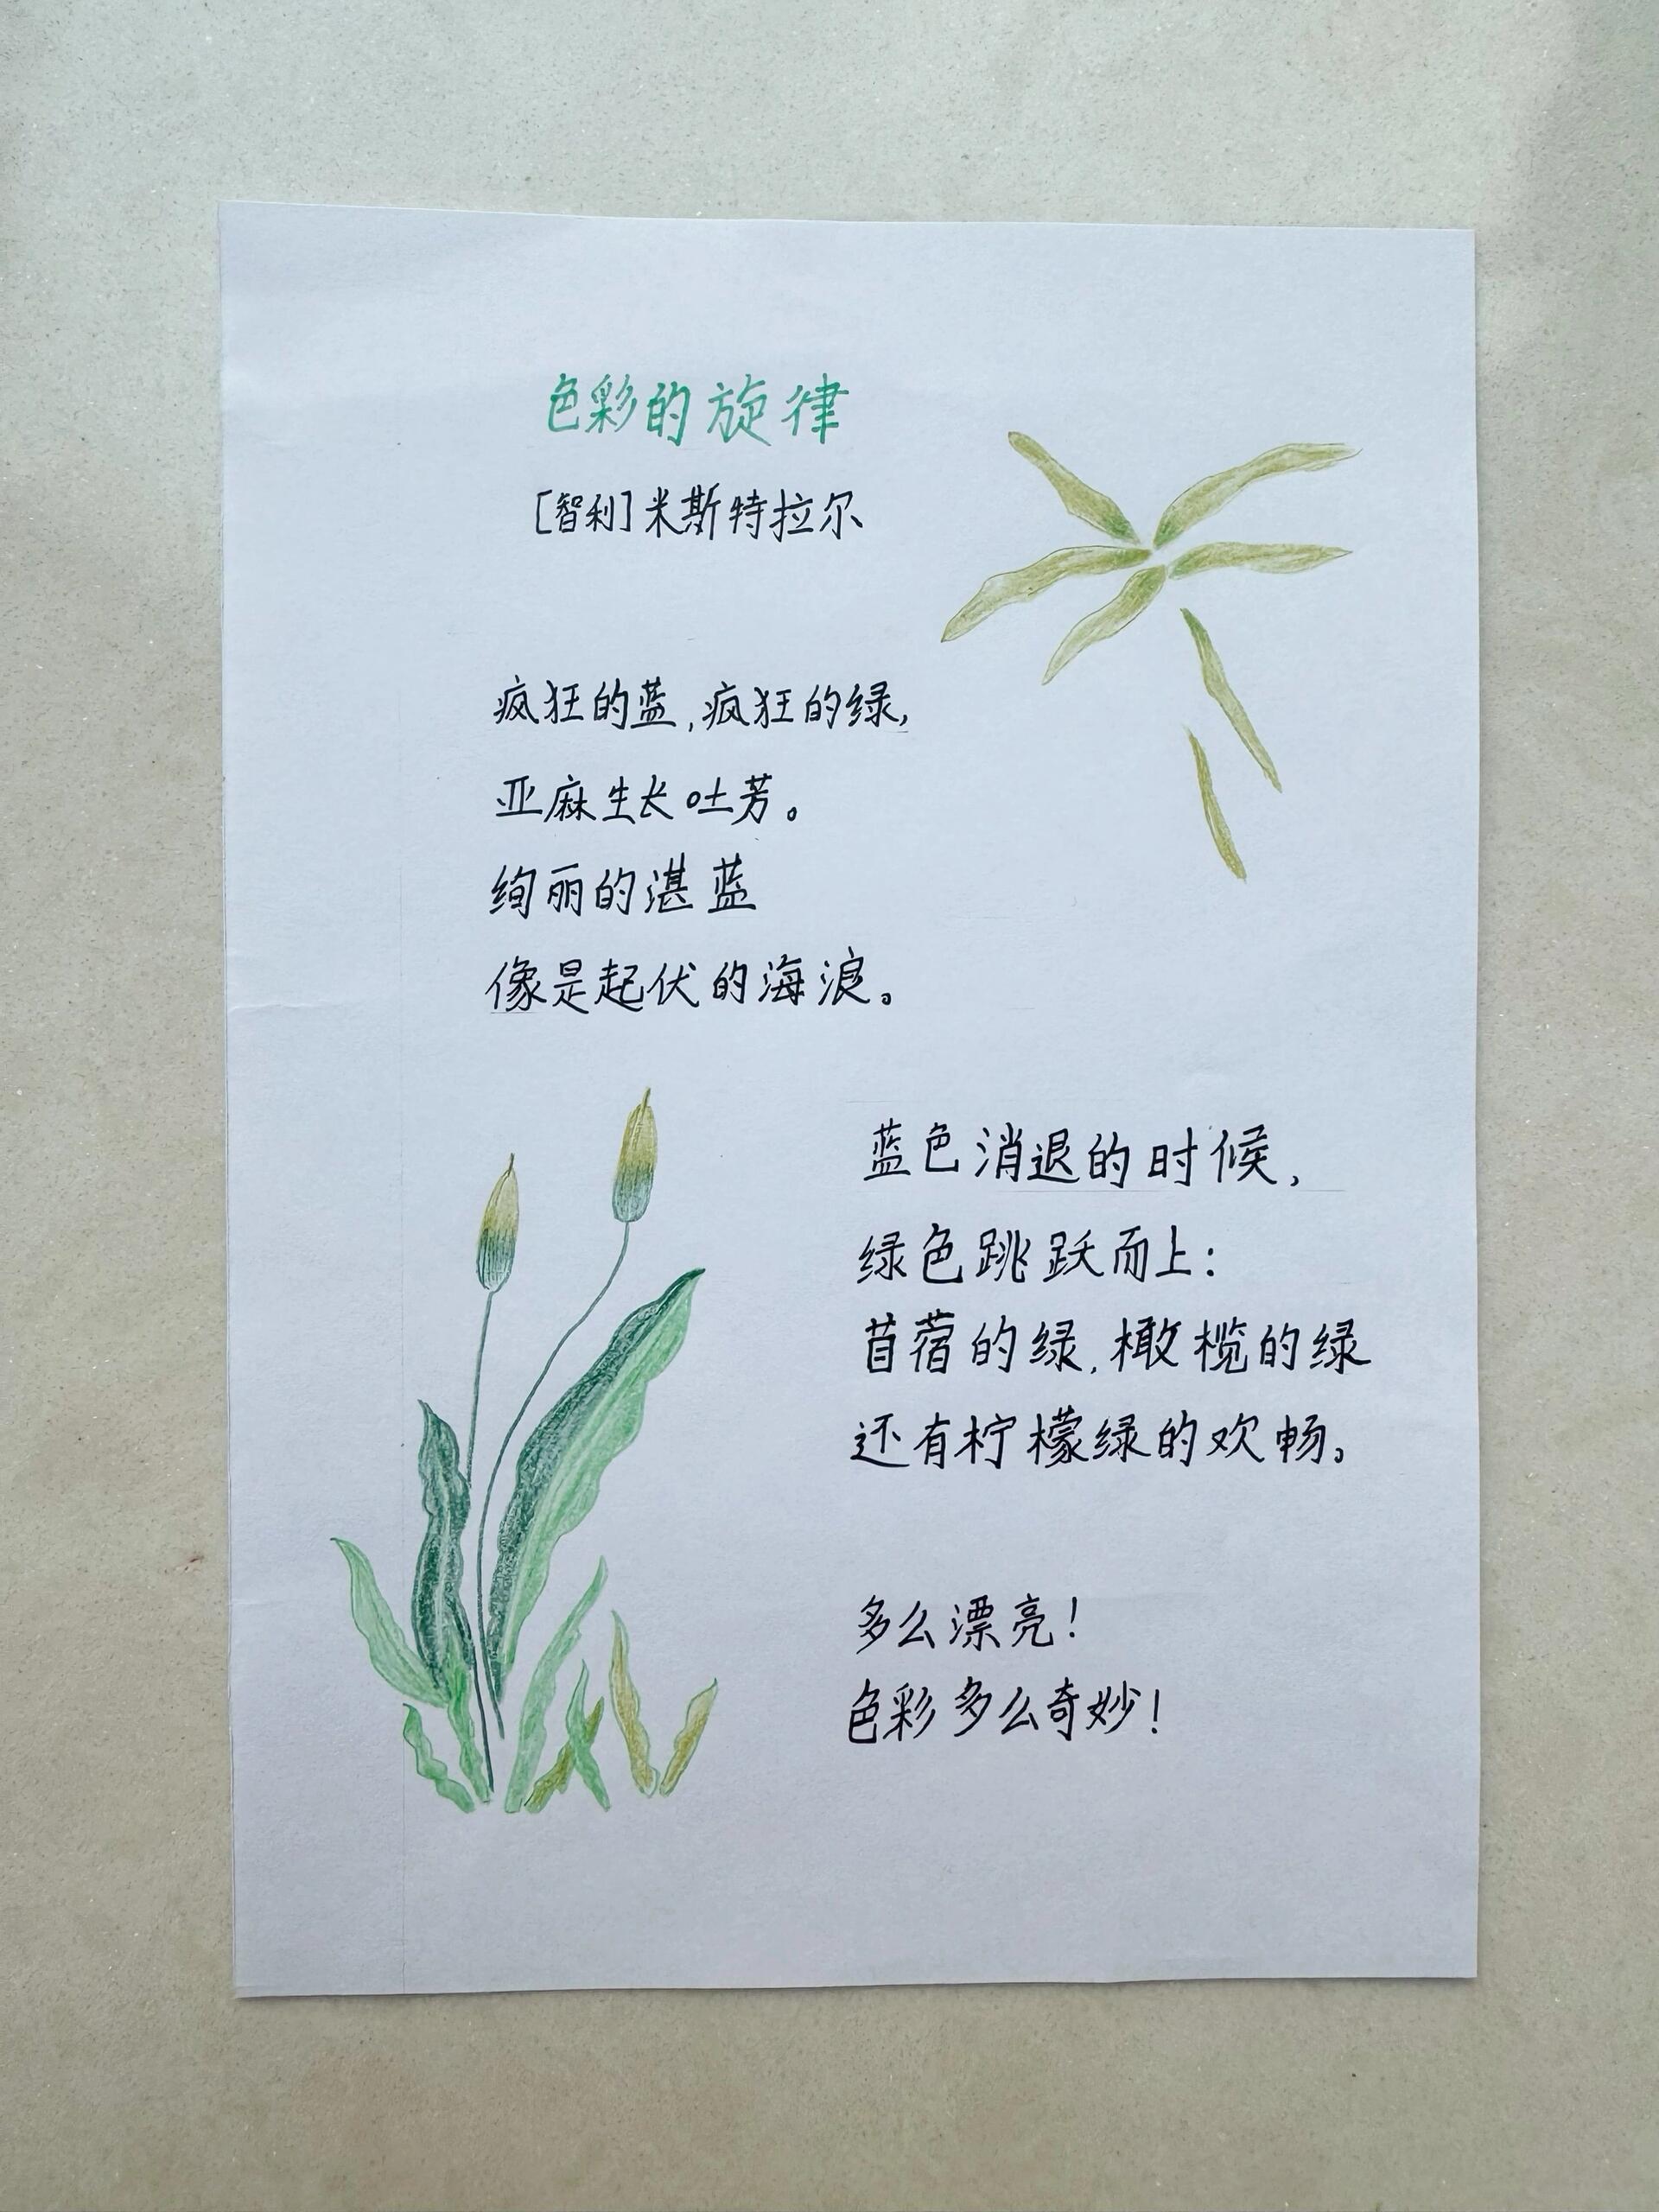 色彩的旋律
[智利]米斯特拉尔
疯狂的蓝,疯狂的绿,
亚麻生长吐芳。
绚丽的湛蓝
像是起伏的海浪。
蓝色消退的时候,
绿色跳跃而上:
苜蓿的绿,橄榄的绿
还有柠檬绿的欢畅。
多么漂亮!
色彩多么奇妙!